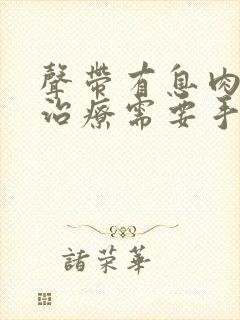 聲帶有息肉
治療需要手
諸荣華